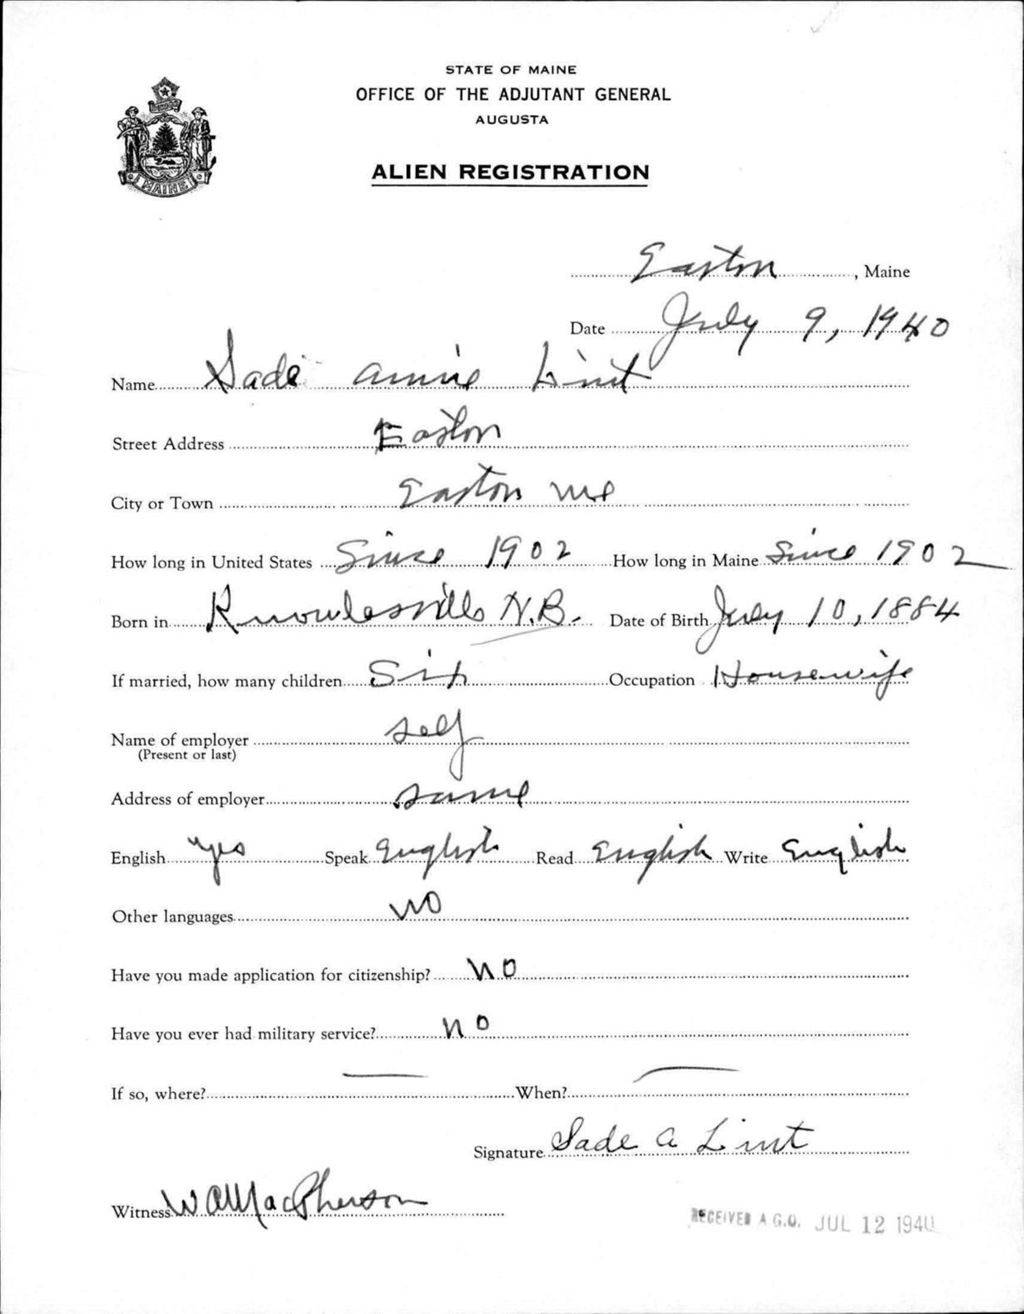 STATE OF MAINE
OFFICE OF THE ADJUTANT GENERAL
AUGUSTA
ALIEN REGISTRATION
MAINE
Easton, Maine
Date July 9, 1940
Name Sade Annie Lint
Street Address Easton
City or Town Easton Me
How long in United States Since 1902 How long in Maine Since 1902
Born in Knowlesville N.B. Date of Birth July 10, 1884
If married, how many children Six Occupation Housewife
Name of employer self
(Present or last)
Address of employer same
English Yes Speak English Read English Write English
Other languages NO
Have you made application for citizenship? NO
Have you ever had military service? NO
If so, where? — When? —
Signature Sade A Lint
Witness W A MacPherson
RECEIVED A.G.O. JUL 12 1940